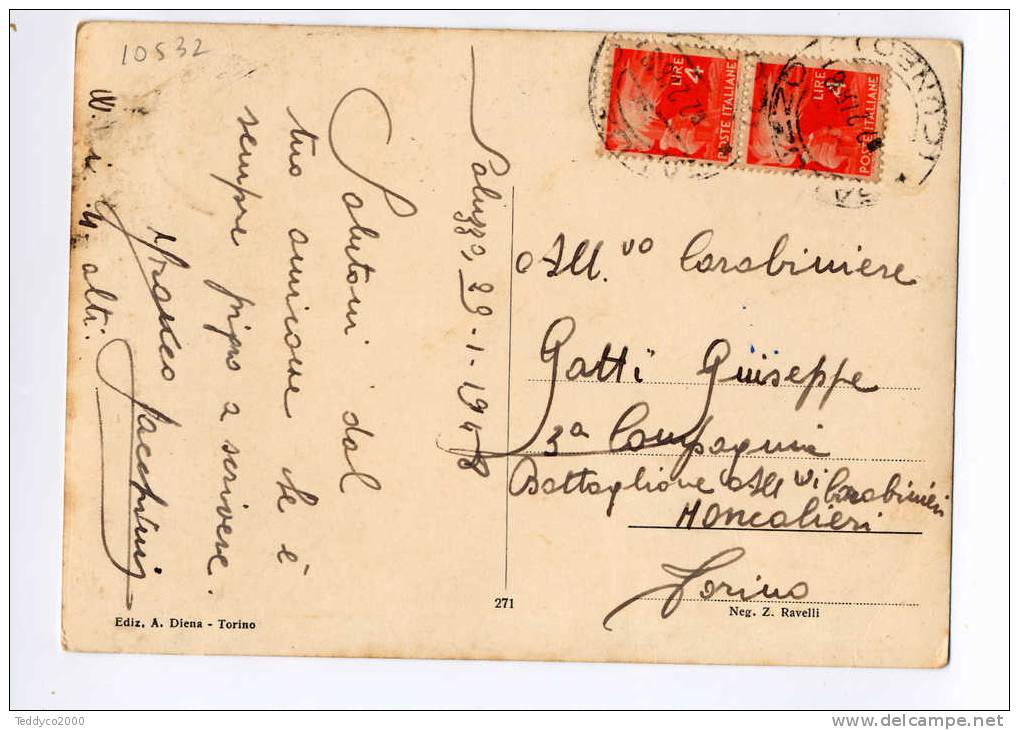 10532
Saluzzo, 29-1-1948
Salutoni dal
tuo amicone che è
sempre pigro a scrivere.
Franco
alti.
LIRE 4
POSTE ITALIANE
LIRE 4
POSTE ITALIANE
(CUNEO)
All.vo Carabiniere
Gatti Giuseppe
3a Compagnia
Battaglione All.vi Carabinieri
Moncalieri
Torino
271
Ediz. A. Diena - Torino
Neg. Z. Ravelli
Teddyco2000
delcampe.net